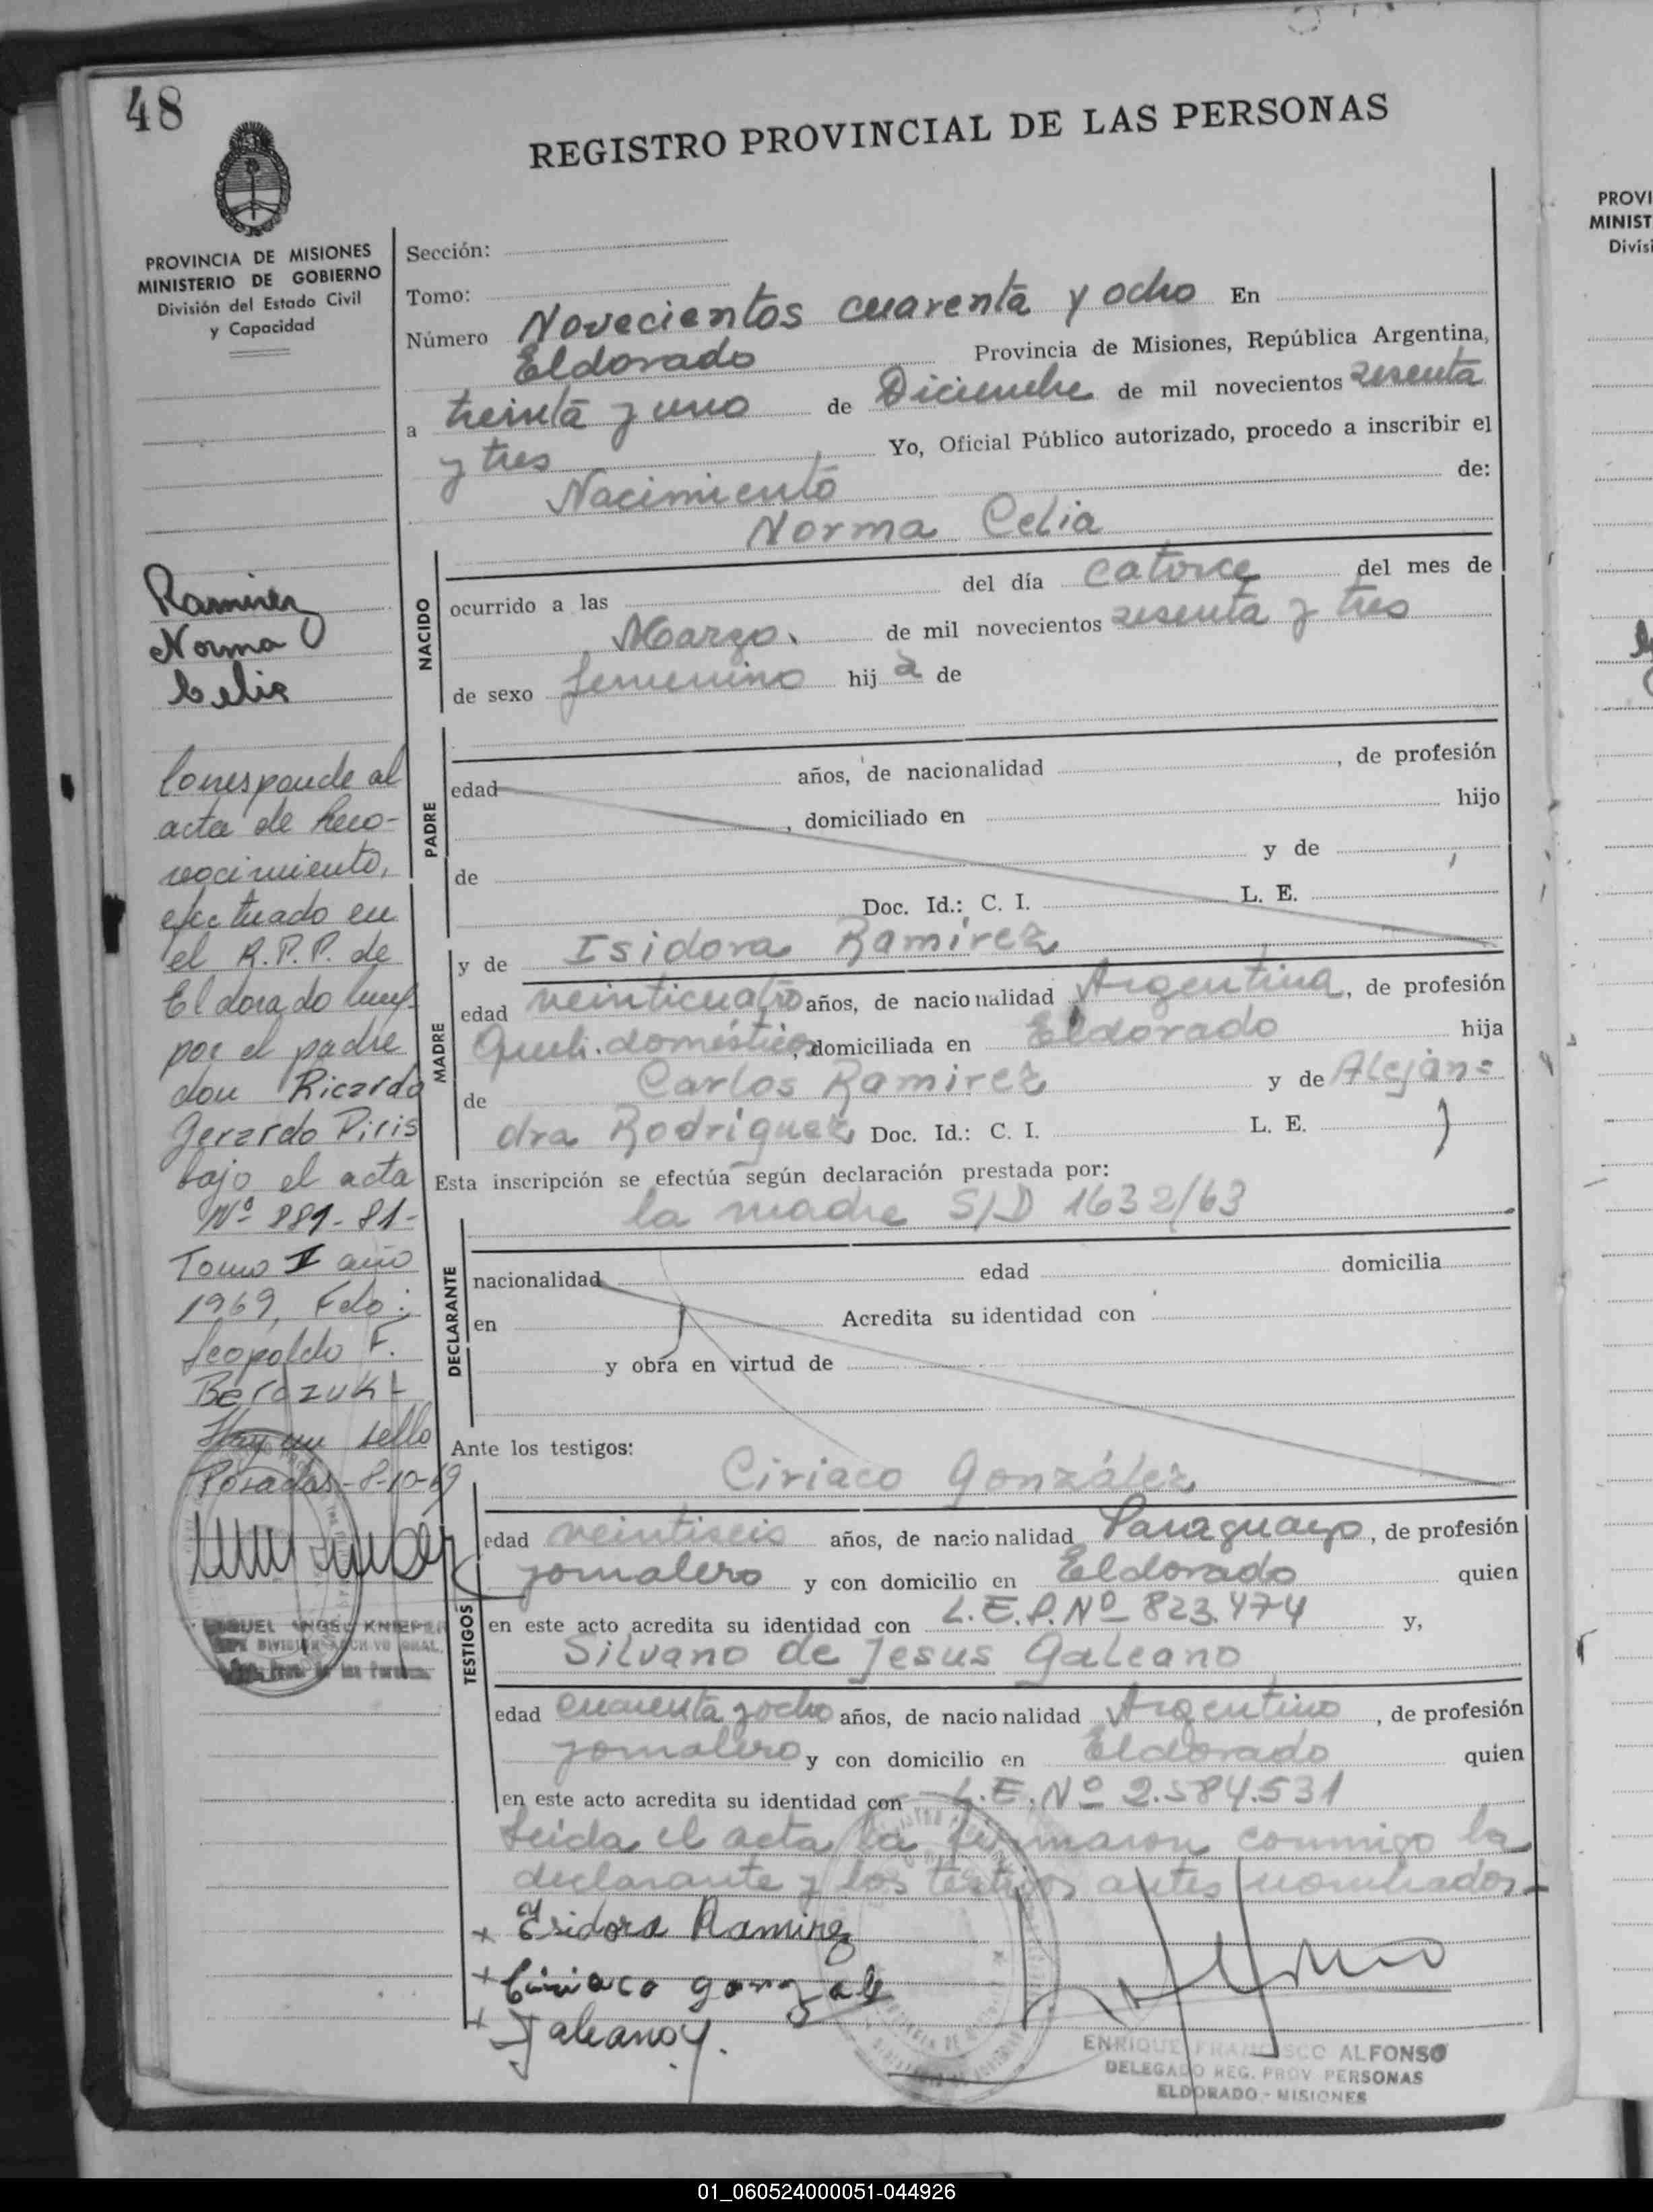 48
REGISTRO PROVINCIAL DE LAS PERSONAS
PROVINCIA DE MISIONES
MINISTERIO DE GOBIERNO
División del Estado Civil
y Capacidad
Sección:
Tomo:
Número Novecientos cuarenta y ocho En
Eldorado Provincia de Misiones, República Argentina,
a treinta y uno de Diciembre de mil novecientos sesenta
y tres Yo, Oficial Público autorizado, procedo a inscribir el
Nacimiento de:
Norma Celia
NACIDO
ocurrido a las del día catorce del mes de
Marzo de mil novecientos sesenta y tres
de sexo femenino hij a de
Ramirez
Norma
Celia
PADRE
edad años, de nacionalidad , de profesión
, domiciliado en hijo
de y de
Doc. Id.: C. I. L. E.
MADRE
y de Isidora Ramírez
edad veinticuatro años, de nacionalidad Argentina, de profesión
Queh. domésticos, domiciliada en Eldorado hija
de Carlos Ramirez y de Alejan=
dra Rodriguez Doc. Id.: C. I. L. E.
Esta inscripción se efectúa según declaración prestada por:
la madre S/D 1632/63
DECLARANTE
nacionalidad edad domicilia
en Acredita su identidad con
y obra en virtud de
Corresponde al
acta de Reco-
nocimiento,
efectuado en
el R.P.P. de
Eldorado
por el padre
don Ricardo
Gerardo Piris
bajo el acta
Nº 881-81-
Tomo II año
1969, Fdo:
Leopoldo F.
Hay un sello
Posadas-8-10-69
MIGUEL ANGEL KNIEPER
JEFE DIVISION ARCHIVO GRAL.
Reg. Prov. de las Personas
Ante los testigos:
Ciriaco González
TESTIGOS
edad veintiseis años, de nacionalidad Paraguayo, de profesión
jornalero y con domicilio en Eldorado quien
en este acto acredita su identidad con L.E.P.Nº 823.474 y,
Silvano de Jesus Galeano
edad cuarenta y ocho años, de nacionalidad Argentino, de profesión
jornalero y con domicilio en Eldorado quien
en este acto acredita su identidad con L.E.Nº 2.584.531
Leida el acta la firmaron conmigo la
declarante y los testigos antes nombrados.-
+ Isidora Ramirez
+ Ciriaco gonzale
+ Galeano
ENRIQUE FRANCISCO ALFONSO
DELEGADO REG. PROV PERSONAS
ELDORADO - MISIONES
PROVI
MINIST
Divisi
01_060524000051-044926